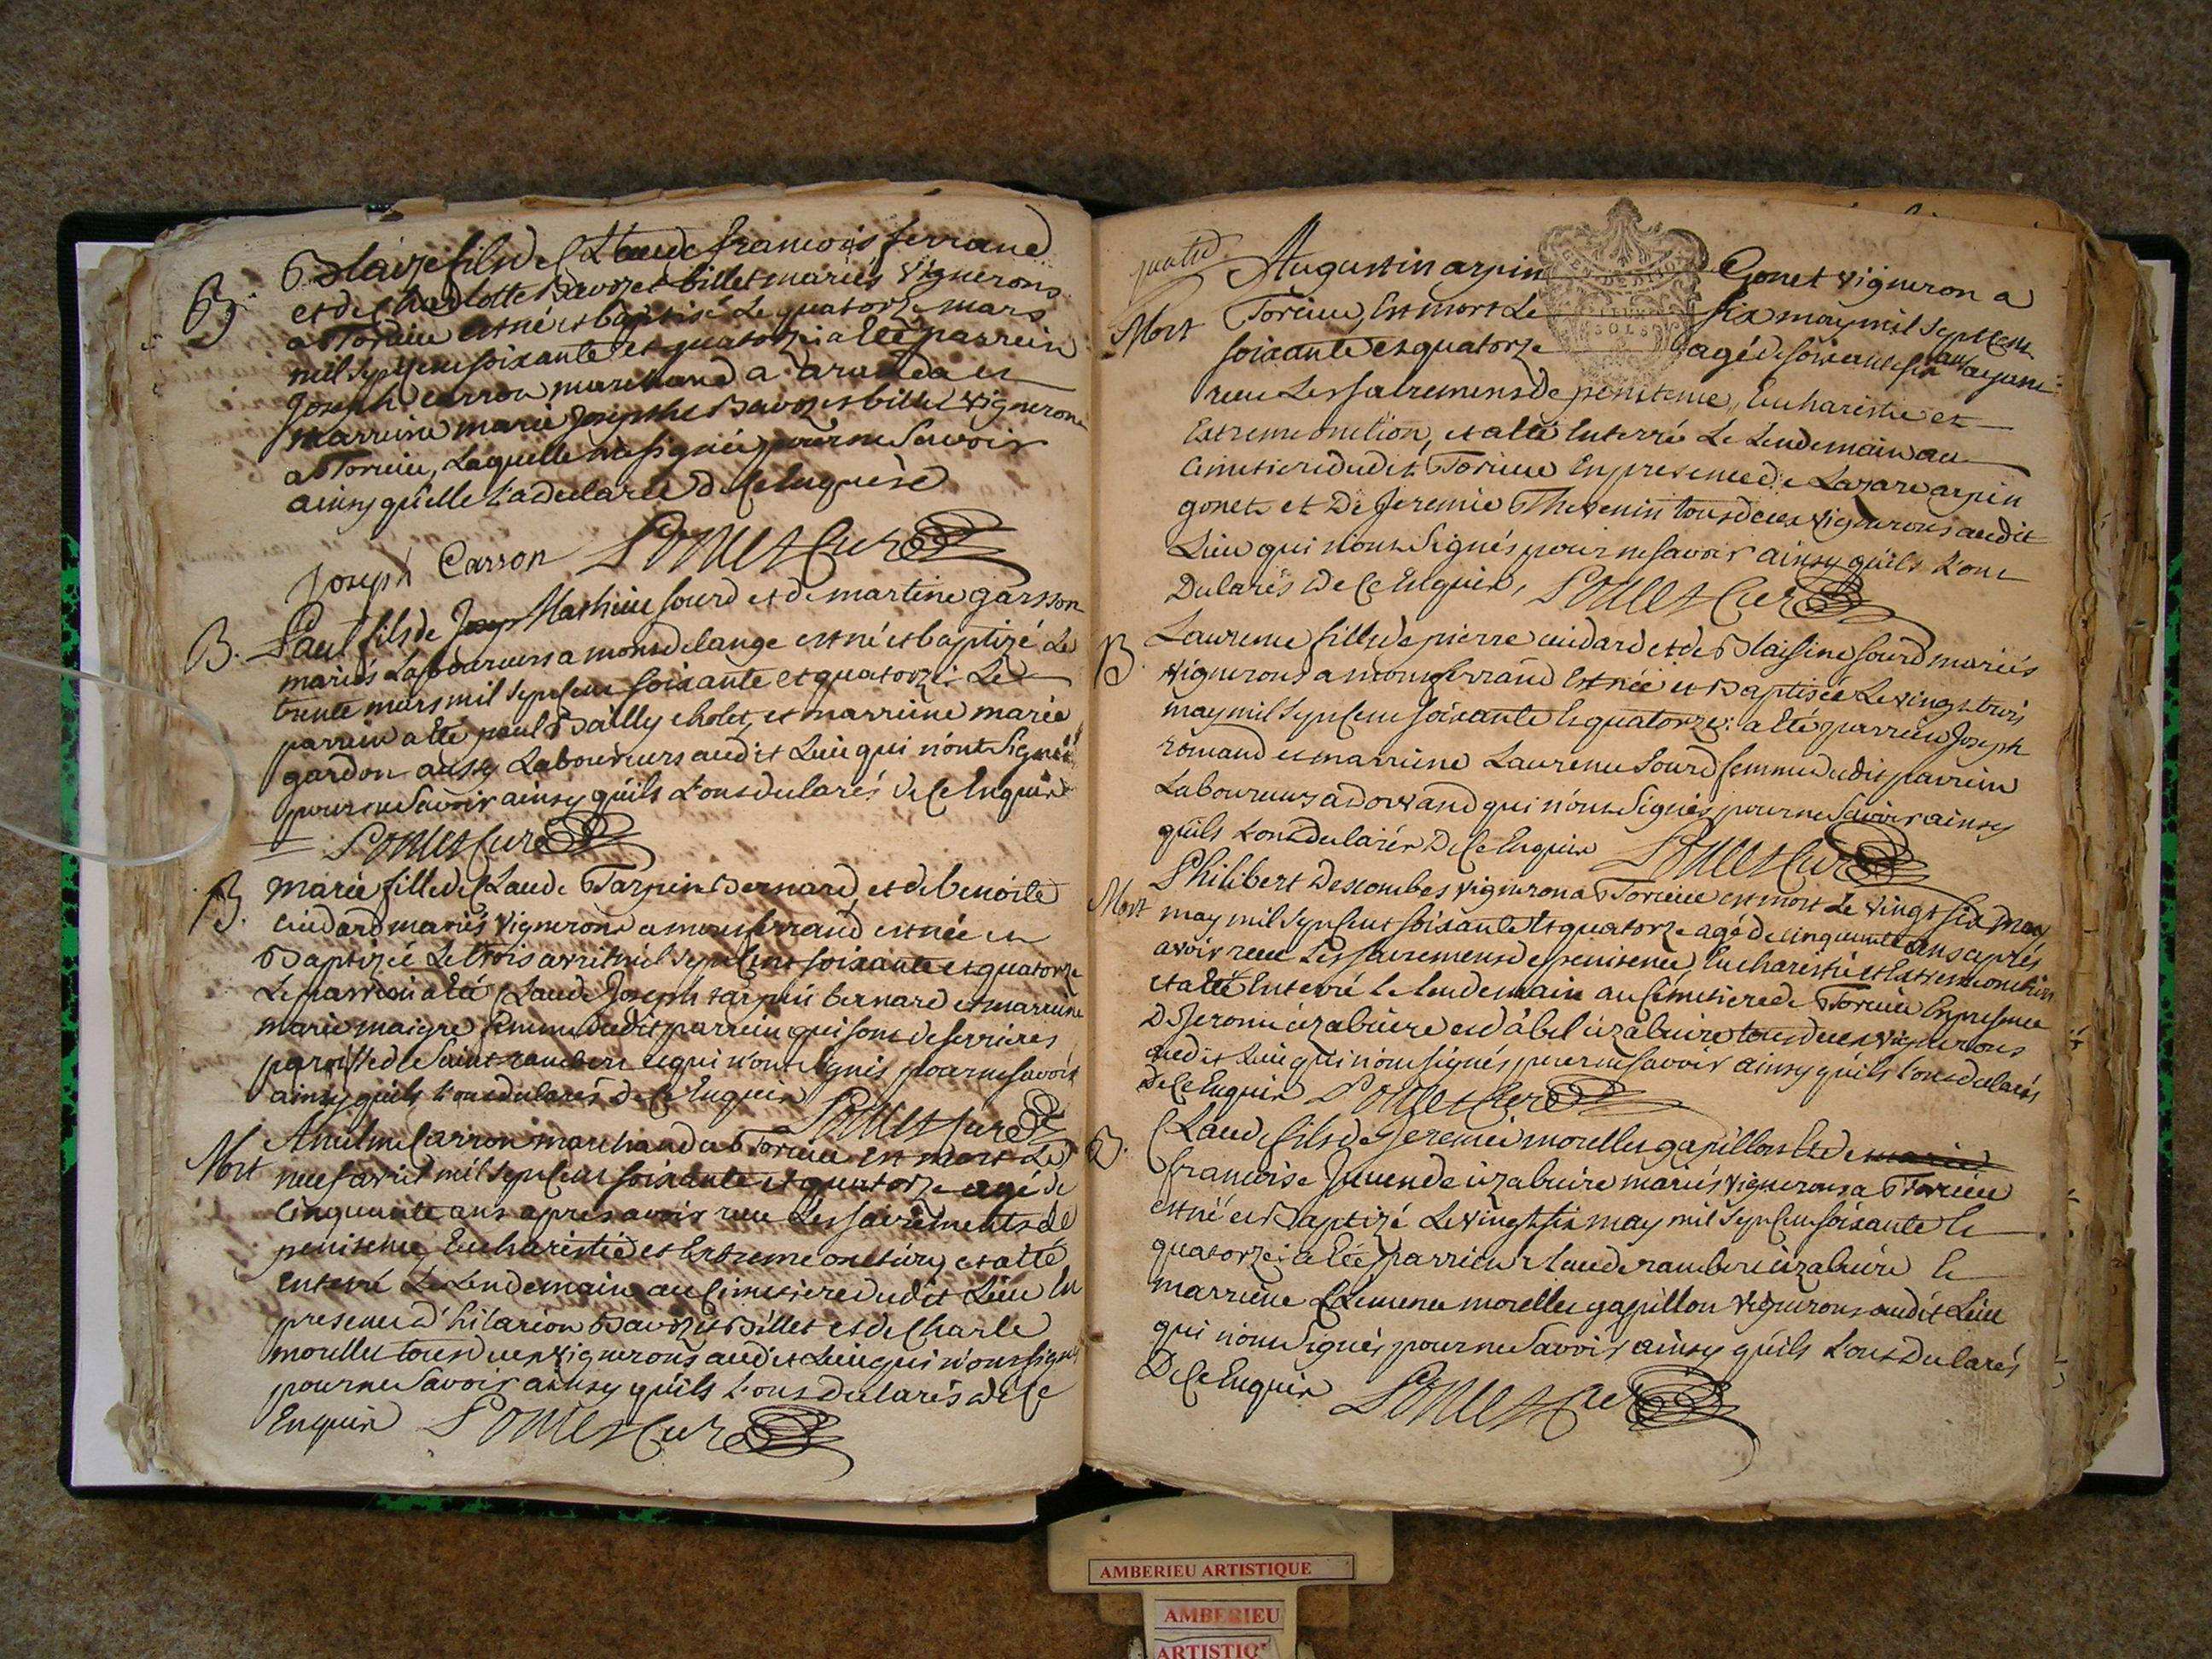 B. Blaize fils de Claude francois ferrand
et de Charlotte Bavozet billet mariés Vignerons
a Torcieu est né et baptisé Le quatorze mars
mil sept cent soixante et quatorze: a été parrein
Joseph carron marchand a aranda et
marreine marie Josephe Bavozet billet vigneronne
a Torcieu, Laquelle n'a signée pour ne Savoir
ainsy qu'elle L'a declarée de Ce Enquise
Joseph Carron Ponet Curé
B. Paul fils de Mathieu Sourd et de martine garsson
mariés Laboureurs a montdelange est né et baptizé Le
trente mars mil sept cent soixante et quatorze: Le
parrein a été paul Bailly cholet, et marreine marie
gardon aussy Laboureurs audit Lieu qui n'ont Signés
pour ne Savoir ainsy qu'ils L'ont declarés de Ce Enquis
Ponet Curé
B. Marie fille de Claude Tarpin Bernard, et de benoite
cuidard mariés Vignerons a montferrand est née et
Baptizée Le trois avril mil sept cent soixante et quatorze
Le parrein a été Claude Joseph tarpin bernard et marreine
marie maigre femme dudit parrein qui sont de serrieres
paroisse de Saint rambert et qui n'ont signés pour ne savoir
ainsy qu'ils L'ont declarés de Ce Enquis
Ponet Curé
Mort Anselme Carron marchand a Torcieu est mort Le
neuf avril mil sept cent soixante et quatorze agé de
cinquante ans apres avoir reçu Les sacrements de
penitence, Eucharistie et Extreme onction, et a été
enterré Le Lendemain au Cimetiere dudit Lieu En
presence d'hilarion Bavozet Billet et de Charle
morellet tous deux vignerons audit Lieu qui n'ont signés
pour ne Savoir ainsy qu'ils L'ont declarés de Ce
Enquis Ponet Curé
Augustin arpin Gonet vigneron a
Mort Torcieu, Est mort Le six may mil sept Cent
soixante et quatorze agé de soixante six ans ayant
reçu Les sacremens de penitence, Eucharistie et
Extreme onction, et a été Enterré Le Lendemain au
cimetiere dudit Torcieu En presence de Lazare arpin
gonet et de Jeremie Thevenin tous deux vignerons audit
Lieu qui n'ont Signés pour ne savoir ainsy qu'ils L'ont
Declarés de Ce Enquis, Ponet Curé
B. Laurence fille de pierre cuidard et de Blaisine Sourd mariés
vignerons a montferrand Est née et Baptisée Le vingt trois
may mil sept cent soixante Et quatorze: a été parrein Joseph
romand et marreine Laurence Sourd femme dudit parrein
Laboureurs a dorvand qui n'ont Signés pour ne Savoir ainsy
qu'ils L'ont declarés de Ce Enquis Ponet Curé
Philibert Descombes vigneron a Torcieu est mort Le vingt six may
Mort may mil sept Cent soixante Et quatorze agé de cinquante ans après
avoir reçu Les sacremens de penitence, Eucharistie et Extreme onction
et a été Enterré Le lendemain au Cimetiere de Torcieu En presence
de Jeromie uzabuire et d'abel uzabuire tous deux vignerons
audit Lieu qui n'ont signés pour ne savoir ainsy qu'ils L'ont declarés
de Ce Enquis Ponet Curé
B. Claude fils de Jeremie morellet gapillon Et de
francoise Juven de uzabuire mariés vignerons a Torcieu
est né et Baptizé Le vingt six may mil sept Cent soixante Et
quatorze: a été parrein Claude rambert uzabuire Et
marreine Clemence morellet gapillon vignerons audit Lieu
qui n'ont Signés pour ne Savoir ainsy qu'ils L'ont Declarés
De Ce Enquis Ponet Curé
AMBERIEU ARTISTIQUE
AMBERIEU
ARTISTIQ